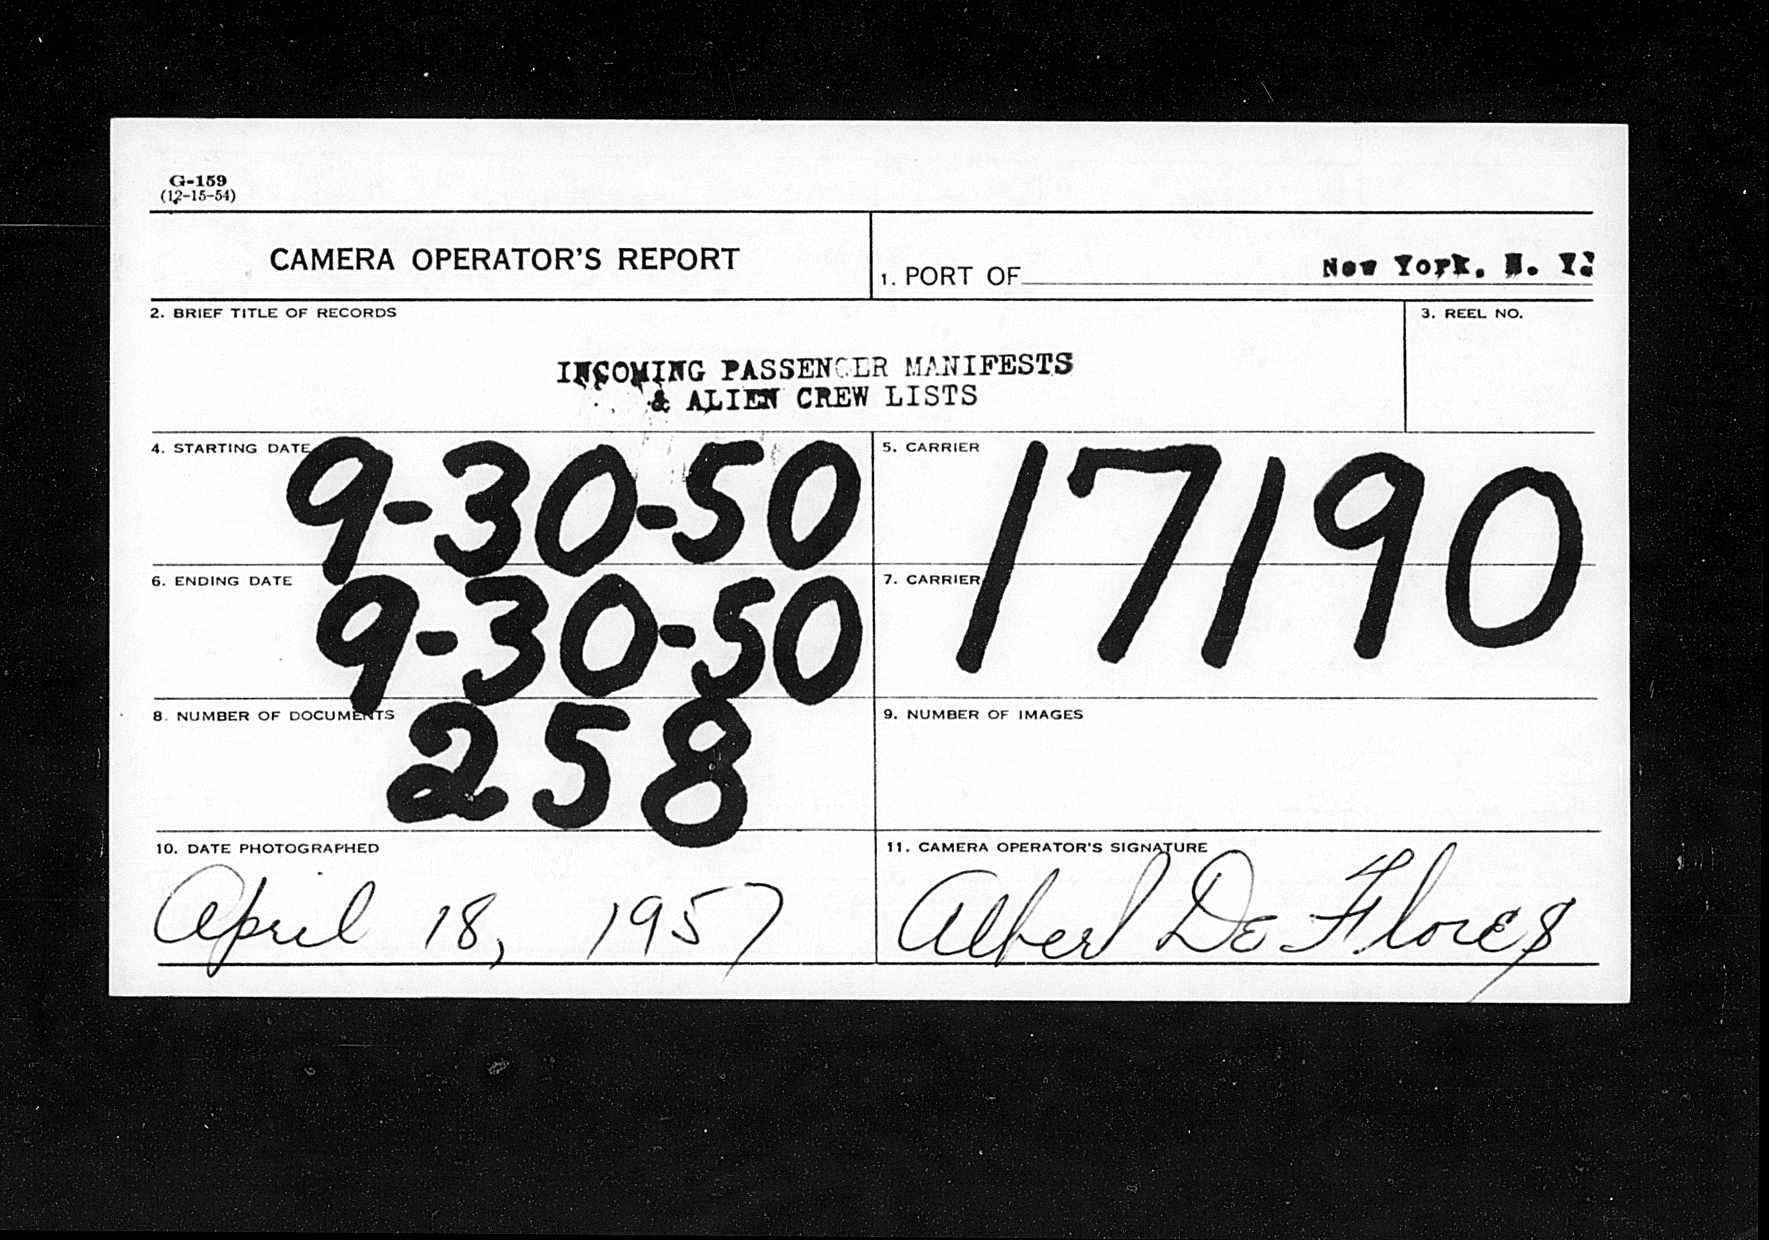 G-159
(12-15-54)
CAMERA OPERATOR'S REPORT
1. PORT OF New York, N. Y.
2. BRIEF TITLE OF RECORDS
3. REEL NO.
INCOMING PASSENGER MANIFESTS
& ALIEN CREW LISTS
4. STARTING DATE 9-30-50
5. CARRIER 17190
6. ENDING DATE 9-30-50
7. CARRIER
8. NUMBER OF DOCUMENTS 258
9. NUMBER OF IMAGES
10. DATE PHOTOGRAPHED
April 18, 1957
11. CAMERA OPERATOR'S SIGNATURE
Albert De Flores